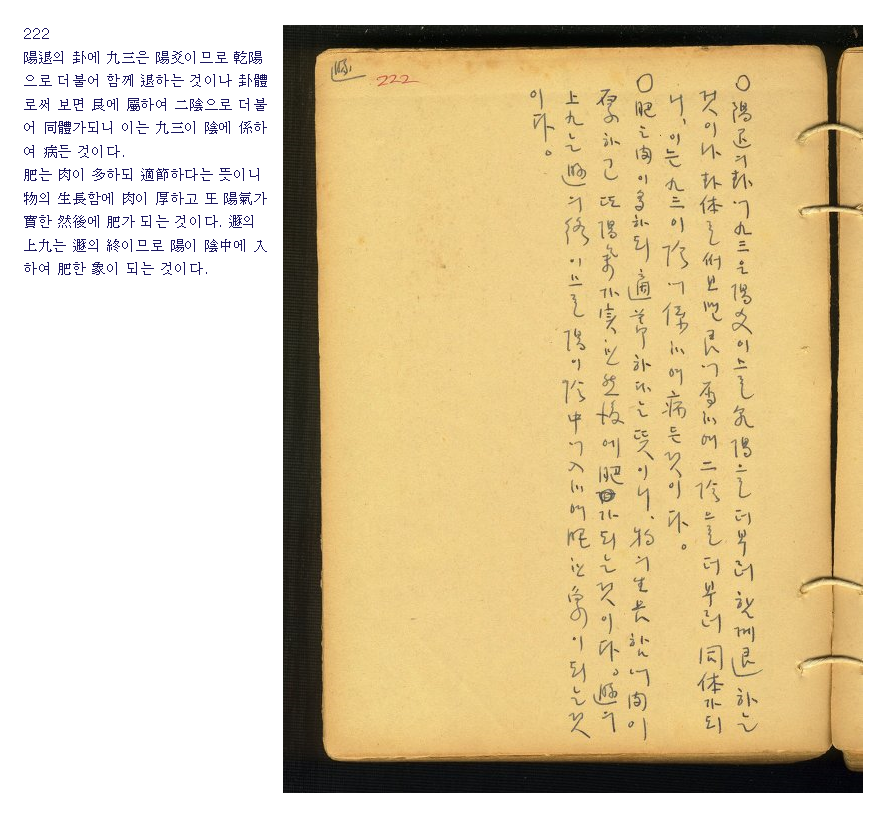 222
陽退의 卦에 九三은 陽爻이므로 乾陽
으로 더불어 함께 退하는 것이나 卦體
로써 보면 艮에 屬하여 二陰으로 더불
어 同體가되니 이는 九三이 陰에 係하
여 病든 것이다.
肥는 肉이 多하되 適節하다는 뜻이니
物의 生長함에 肉이 厚하고 또 陽氣가
實한 然後에 肥가 되는 것이다. 遯의
上九는 遯의 終이므로 陽이 陰中에 入
하여 肥한 象이 되는 것이다.
遯
222
○ 陽退의 卦에 九三은 陽爻이므로 乾陽으로 더부러 함께 退하는
것이나 卦体로써 보면 艮에 屬하여 二陰으로 더부러 同体가 되
니, 이는 九三이 陰에 係하여 病든 것이다。
○ 肥는 肉이 多하되 適節하다는 뜻이니, 物의 生長함에 肉이
厚하고 또 陽氣가 実한 然後에 肥가 되는 것이다。遯의
上九는 遯의 終이므로 陽이 陰中에 入하여 肥한 象이 되는 것
이다。